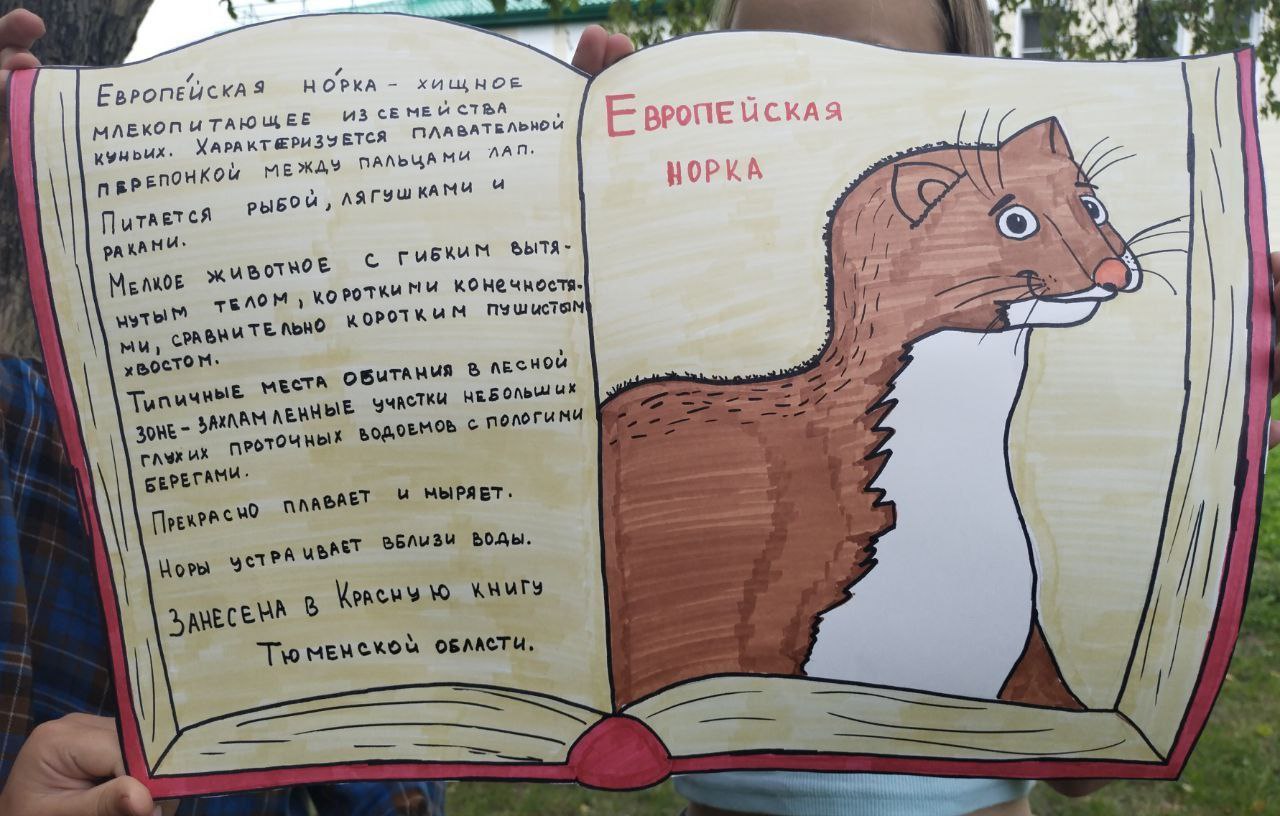 Европе́йская но́рка – хищное
млекопитающее из семейства
куньих. Характеризуется плавательной
перепонкой между пальцами лап.
Питается рыбой, лягушками и
раками.
Мелкое животное с гибким вытя-
нутым телом, короткими конечностя-
ми, сравнительно коротким пушистым
хвостом.
Типичные места обитания в лесной
зоне – захламленные участки небольших
глухих проточных водоемов с пологими
берегами.
Прекрасно плавает и ныряет.
Норы устраивает вблизи воды.
Занесена в Красную книгу
Тюменской области.
Европейская
норка